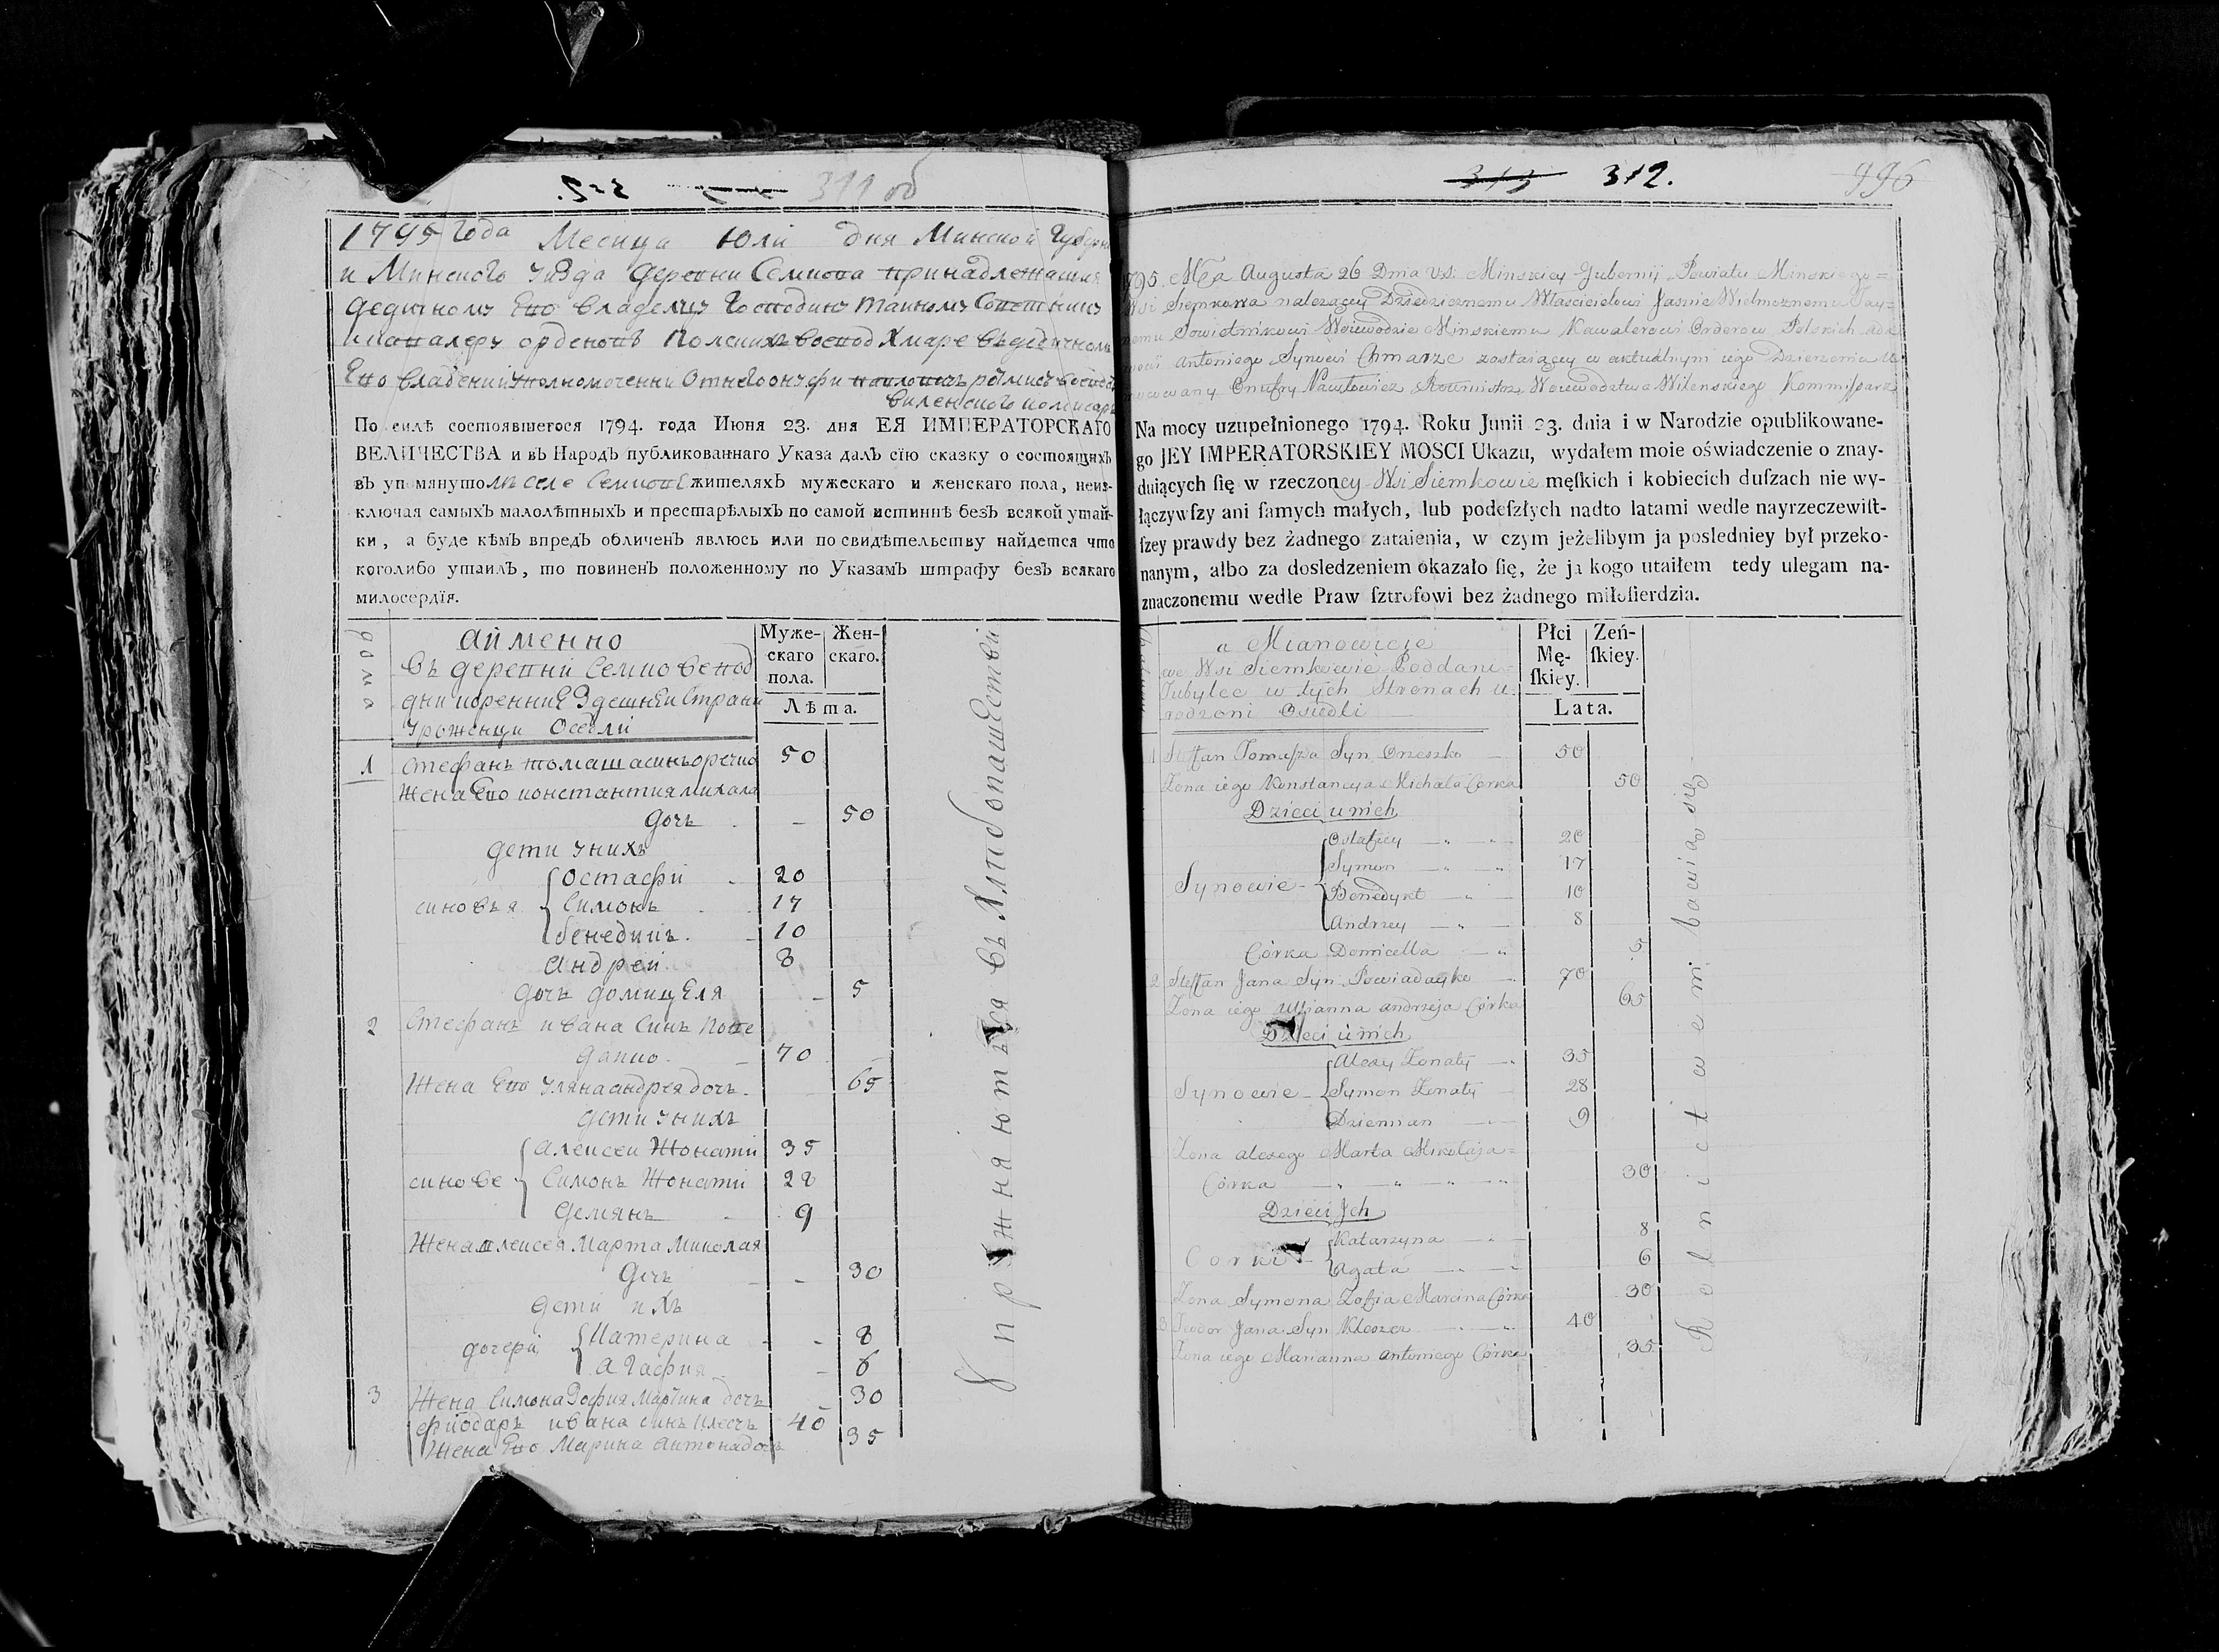 311 об
1795 Года Месица Юли дня Минской Губерн
и Минского уизда деревни Семкова принадлежащия
дедичному Его владелцу Господину Таиному Советнику
и кавалеру орденовъ Полскихъ воевод Хмаре въ дедичном
Его владении уполномоченни Отнего онуфри павловичъ ротмистръ воевод
виленского комисаръ
По силѣ состоявшегося 1794. года Июня 23. дня ЕЯ ИМПЕРАТОРСКАГО
ВЕЛИЧЕСТВА и въ Народъ публикованнаго Указа далъ сїю сказку о состоящихъ
въ упомянутомъ селе Семкове жителяхъ мужескаго и женскаго пола, неиз-
ключая самыхъ малолѣтныхъ и престарѣлыхъ по самой истиннѣ безъ всякой утай-
ки, а буде кѣмъ впредъ обличенъ явлюсь или по свидѣтельству найдется что
коголибо утаилъ, то повиненъ положенному по Указамъ штрафу безъ всякаго
милосердїя.
домо
а именно
въ деревни Семкове под
дни коренние Здешнеи Страни
Уроженци Осебли
Муже-
скаго
пола.
Жен-
скаго.
Лѣта.
1 Стефанъ томаша синъ оречко 50
Жена Его константия михала
дочъ - 50
дети у нихъ
синовья
Остафи 20
Симонъ 17
бенедикъ 10
Андреи 8
дочъ домицеля - 5
2 Стефанъ ивана Синъ Пове
даико 70
Жена Его уляна андрея дочъ 65
дети у нихъ
синове
Алексеи Жонати 35
Симонъ Жонати 28
Демянъ 9
Жена алексея Марта Миколая
дочъ - 30
дети ихъ
дочери
Катерина - 8
Агафия - 6
Жена Симона Зофия Марцина дочъ 30
3 фиодаръ ивана синъ клесчъ 40
Жена Его Марина антона дочъ 35
Упражняются въ хлибопашестви
313 312.
996
1795 Mca Augusta 26 Dnia v.s. Minskiey Gubernij Powiatu Minskiego
Wsi Siemkowa nalezącey Dziedzicznemu Własciciełowi Jasnie Wielmoznemu Tay-
nemu Sowietnikowi Woiewodzie Minskiemu Kawalerowi Orderow Polskich Ada
mowi Antoniego Synowi Chmarze zostaiącey w aktualnym iego Dzierzeniu
Onufry Pawłowicz Rotmistrz Woiewodztwa Wilenskiego Kommissarz
Na mocy uzupełnionego 1794. Roku Junii 23. dnia i w Narodzie opublikowane-
go JEY IMPERATORSKIEY MOSCI Ukazu, wydałem moie oświadczenie o znay-
duiących ſię w rzeczoney Wsi Siemkowie męſkich i kobiecich duſzach nie wy-
łączywſzy ani ſamych małych, lub podeſzłych nadto latami wedle nayrzeczewiſt-
ſzey prawdy bez żadnego zataienia, w czym jeżelibym ja posledniey był przeko-
nanym, albo za dosledzeniem okazało ſię, że ja kogo utaiłem tedy ulegam na-
znaczonemu wedle Praw ſztrofowi bez żadnego miłoſierdzia.
a Mianowicie
we Wsi Siemkowie Poddani
Tubylce w tych Stronach u-
rodzoni Osiedli
Płci
Mę-
ſkiey.
Zeń-
ſkiey.
Lata.
1 Steffan Tomaſza Syn Oreszko 50
Zona iego Konstancya Michala Corka 50
Dzieci u nich
Synowie
Ostafiey 20
Symon 17
Benedykt 10
Andrzey 8
Córka Domicella 5
2 Steffan Jana Syn Powiadayko 70
Zona iego Ullianna Andrzeja Córka 65
Dzieci u nich
Synowie
Alexy Zonaty 35
Symon Zonaty 28
Dziemian 9
Zona Alexego Marta Mikołaja
Córka 30
Dzieci Jch
Corki
Katarzyna 8
Agata 6
Zona Symona Zofia Marcina Córka 30
3 Teodor Jana Syn Kleszcz 40
Zona iego Marianna Antoniego Córka 35
Rolnictwem bawią się